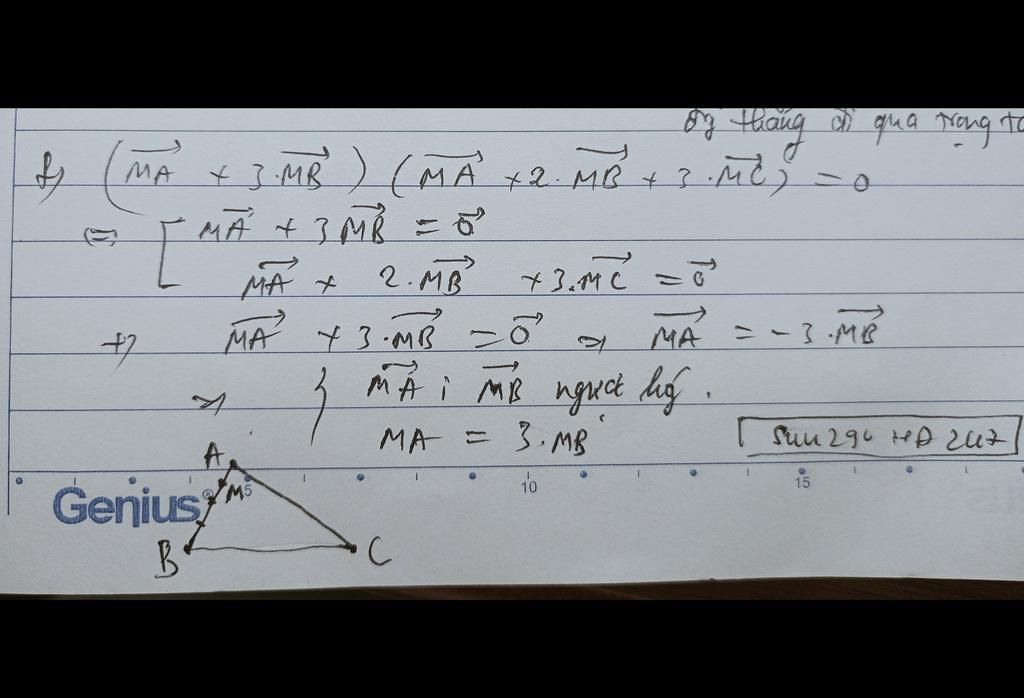 đg thẳng đi qua trọng tâ
f, (MA→ + 3.MB→) (MA→ + 2.MB→ + 3.MC→) = 0
⇔ [ MA→ + 3MB→ = 0→
MA→ + 2.MB→ + 3.MC→ = 0→
+, MA→ + 3.MB→ = 0→ ⇒ MA→ = -3.MB→
⇒ { MA→ ; MB→ ngược hg.
MA = 3.MB
A
M
5 10 15
Genius®
B C